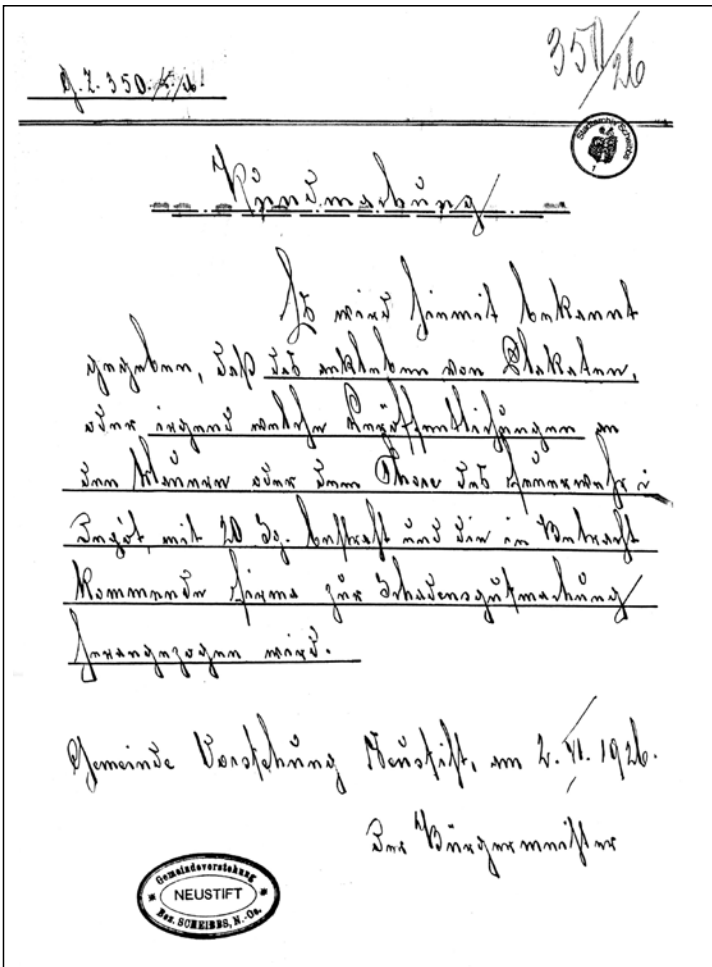 G.Z. 350.
350/26
Stadtarchiv Scheibbs
Kundmachung
Es wird hiermit bekannt
gegeben, daß das ankleben von Plakaten,
oder irgend welche Veröffentlichungen an
den Mauern oder dem Thore des Feuerwehr
Depot, mit 20 bestraft und die in Betracht
kommende Firma zur Schadensgutmachung
herangezogen wird.
Gemeinde Vorstehung Neustift, am 2. VI. 1926.
Der Bürgermeister
Gemeindevorstehung
NEUSTIFT
Bez. SCHEIBBS, N.-Oe.